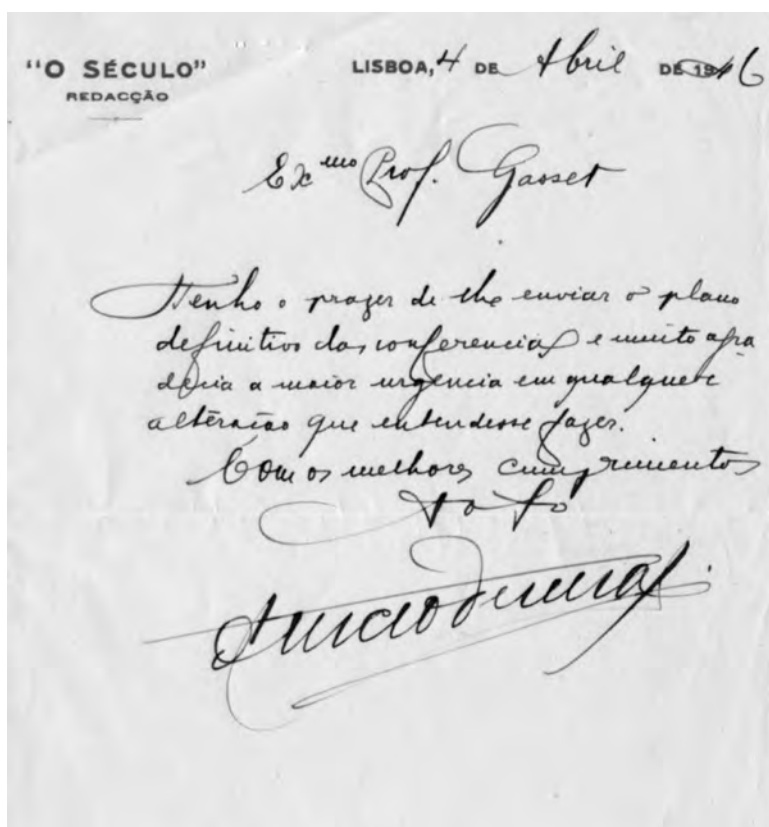 "O SÉCULO"
REDACÇÃO
LISBOA, 4 DE Abril DE 1946
Exmo Prof. Gasset
Tenho o prazer de lhe enviar o plano
definitivo das conferencias e muito agra
decia a maior urgencia em qualquer
alteração que entendesse fazer.
Com os melhores cumprimentos